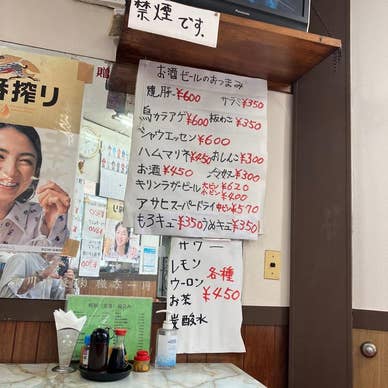 禁煙です.
搾り
お酒ビールのおつまみ
¥600 サラミ¥350
鳥カラアゲ¥600 板わさ¥350
シャウエッセン¥600
ハムマリネ¥450 おしんこ¥300
お酒¥450 ¥300
キリンラガービール 大ビン¥620
小ビン¥400
アサヒスーパードライ中ビン¥570
もろキュー¥350 うめキュー¥350
サワー
レモン
ウーロン
お茶
炭酸水
各種
¥450